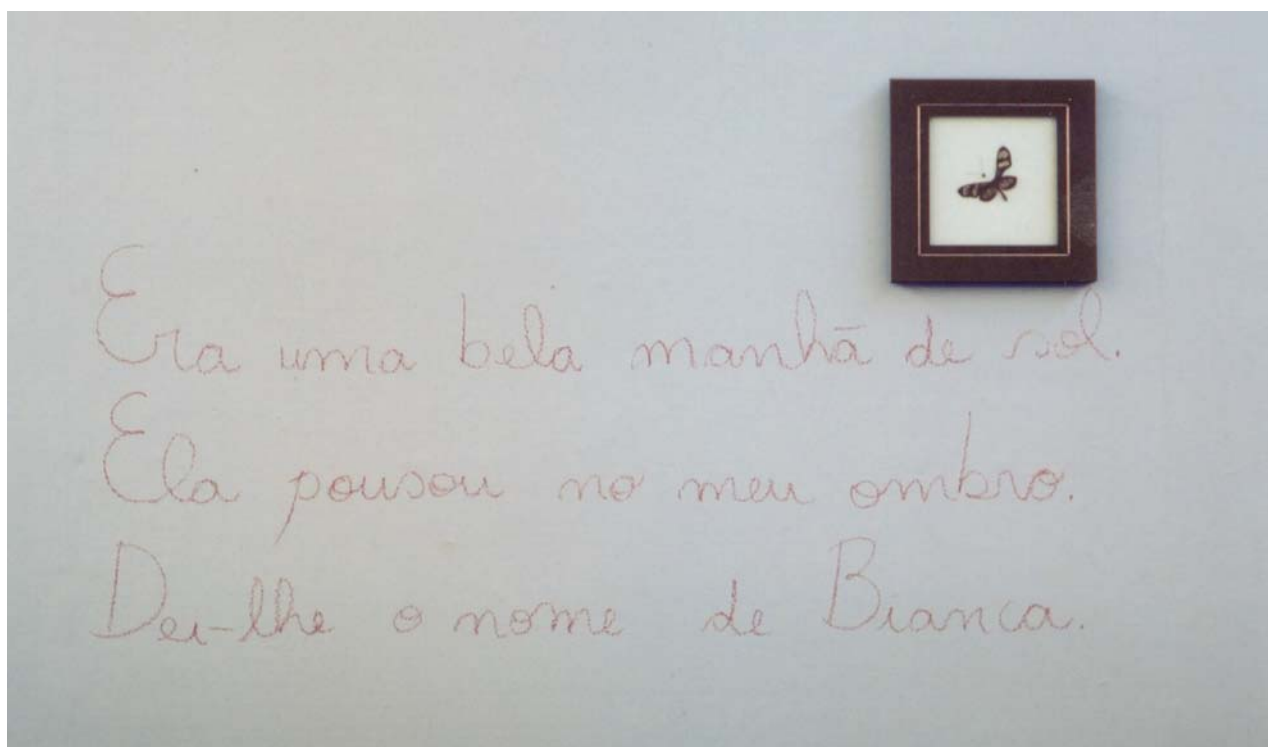 Era uma bela manhã de sol.
Ela pousou no meu ombro.
Dei-lhe o nome de Bianca.